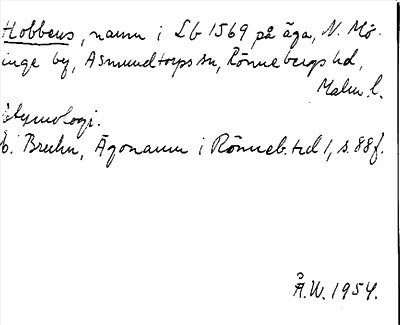 Hobbens, namn i Lb 1569 på äga, N. Mö-
inge by, Asmundtorps sn, Rönnebergs hd,
Malm. l.
Etymologi.
E. Bruhn, Ägonamn i Rönneb. hd 1, s. 88 f.
Å.W. 1954.